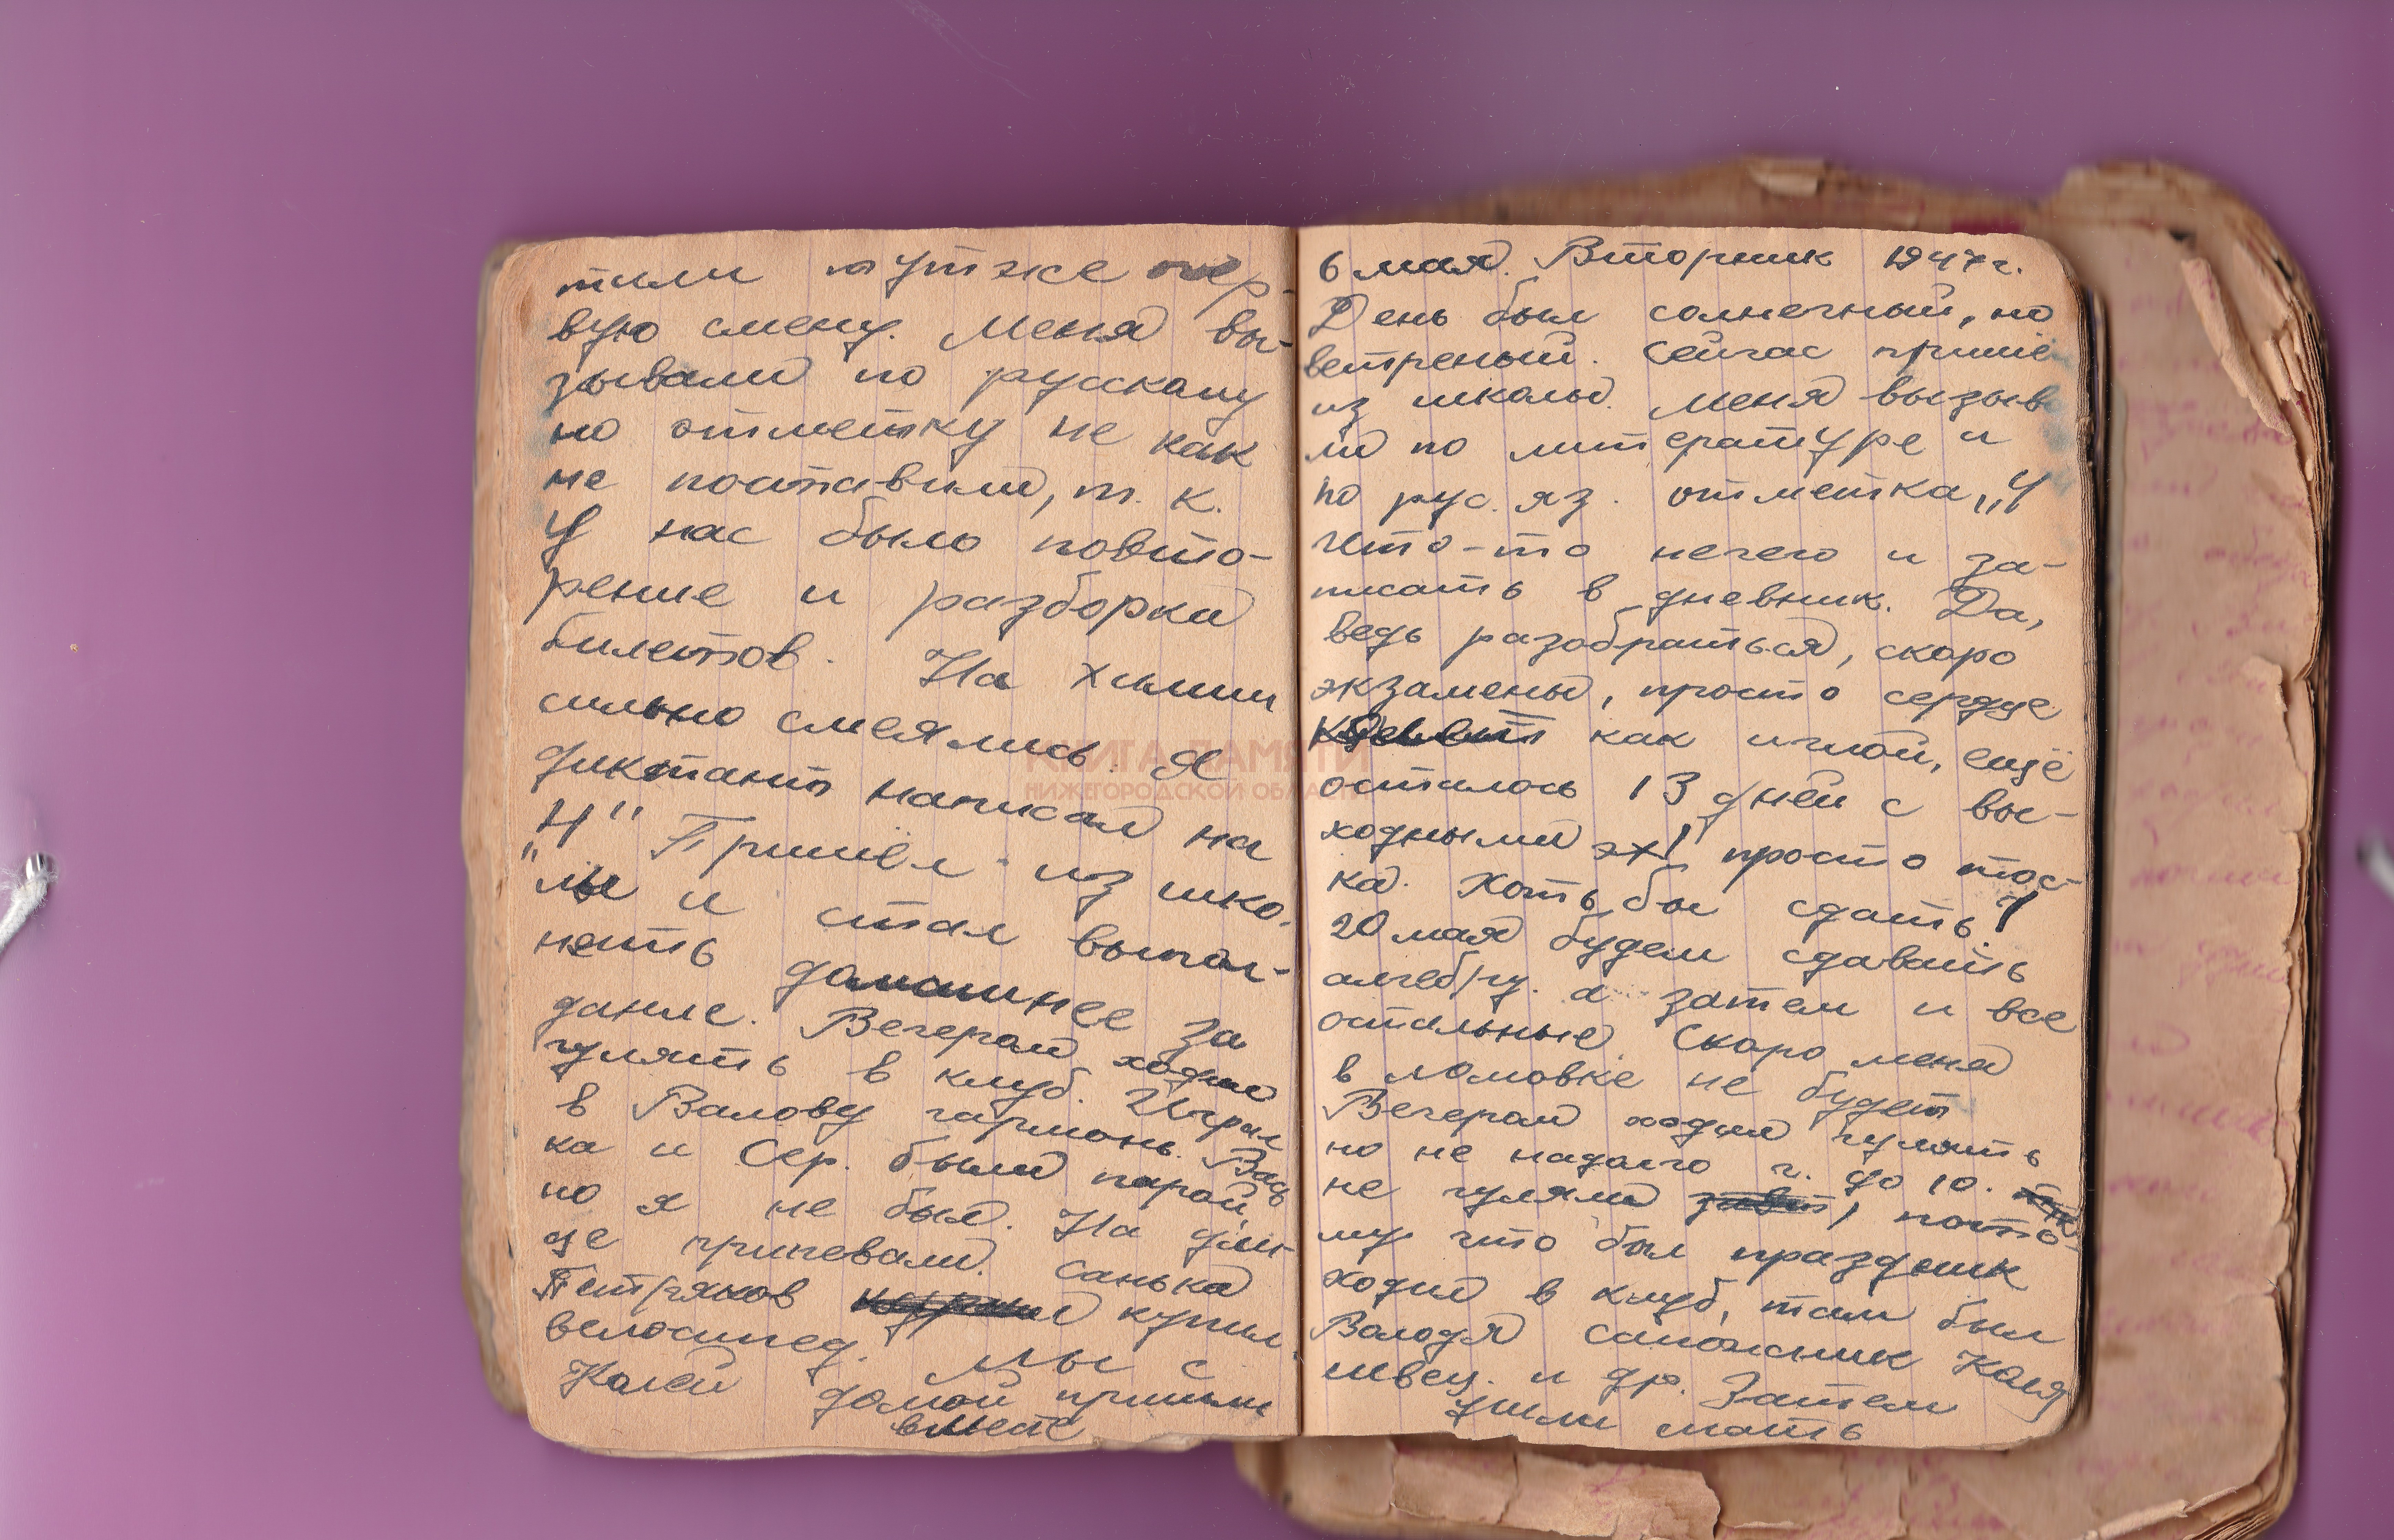 тили тут же пер-
вую смену. Меня вы-
зывали по русскому
но отметку не как
не поставили, т. к.
у нас было повто-
рение и разборка
билетов. На химии
сильно смеялись. Я
диктант написал на
"4" Пришёл из шко-
лы и стал выпол-
нять домашнее за
дание. Вечером ходил
гулять в клуб. Играл
в Валову гармонь. Вась
ка и Сер. были парой
но я не был. На
це припевали. Санька
Петряков купил
велосипед. Мы с
Колей домой пришли
вместе
КНИГА ПАМЯТИ
НИЖЕГОРОДСКОЙ ОБЛАСТИ
6 мая. Вторник 1947 г.
День был солнечный, но
ветреный. Сейчас пришё
из школы. Меня вызыва
ли по литературе и
по рус. яз. отметка „4
Что-то нечего и за-
писать в дневник. Да,
ведь разобраться, скоро
экзамены, просто сердце
как иглой, ещё
осталось 13 дней с вы-
ходными эх! просто тос-
ка. Хоть бы сдать!
20 мая будем сдавать
алгебру. а затем и все
остальные. Скоро меня
в ломовке не будет
Вечером ходил гулять
но не надолго ч. до 10.
не гуляли, пото-
му что был праздник
ходил в клуб, там был
Володя сапожник Коля
швец. и др. Затем
ушли спать